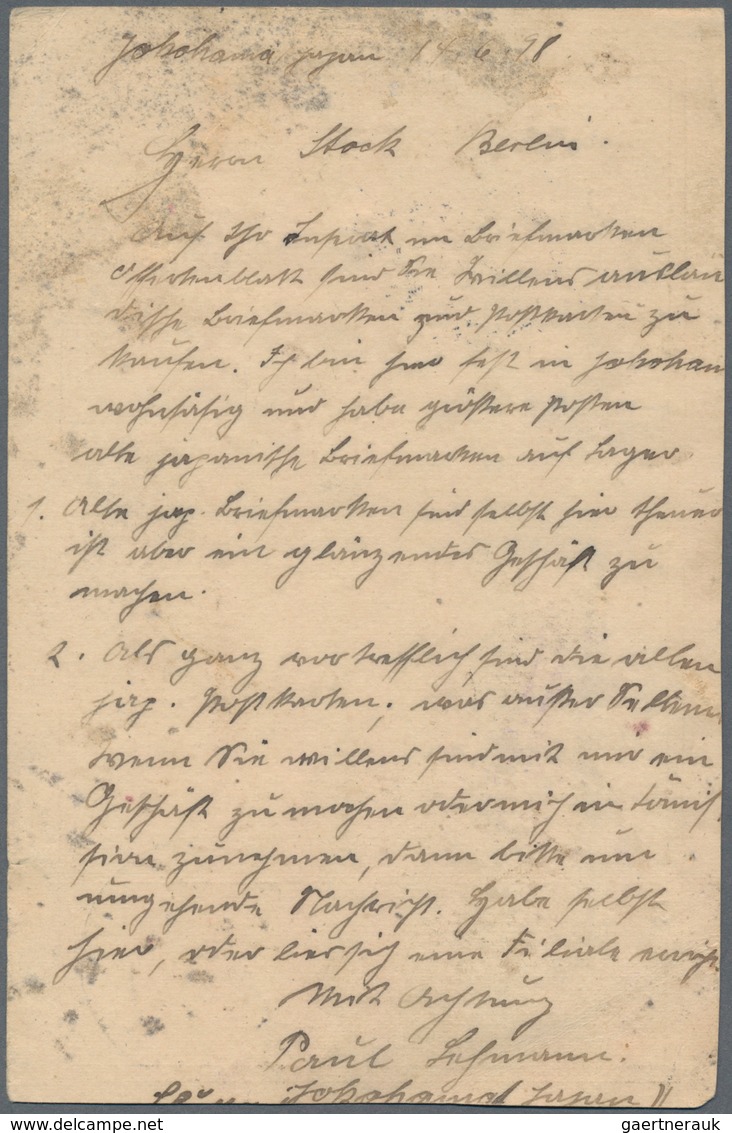 Jokohama Japan 14 6 98
Herrn Stock Berlin.
Auf Ihr Inserat im Briefmarken
Offertenblatt sind Sie Willens auslän
dische Briefmarken und Postkarten zu
kaufen. Ich bin hier fest in Jokoham
wohnhäfig und habe größere Posten
alte japanische Briefmarken auf Lager.
1. Alte jap. Briefmarken sind selbst hier theuer
ist aber ein glänzendes Geschäft zu
machen.
2. Als ganz vortrefflich sind die alten
jap. Postkarten, was außer Selten
wenn Sie willens sind mit mir ein
Geschäft zu machen oder mich in
sion zunehmen, dann bitte um
umgehende Nachricht. Habe selbst
hier, oder eine Filiale
Mit Achtung
Paul Lehmann.
Jokohama Japan
gaertnerauk